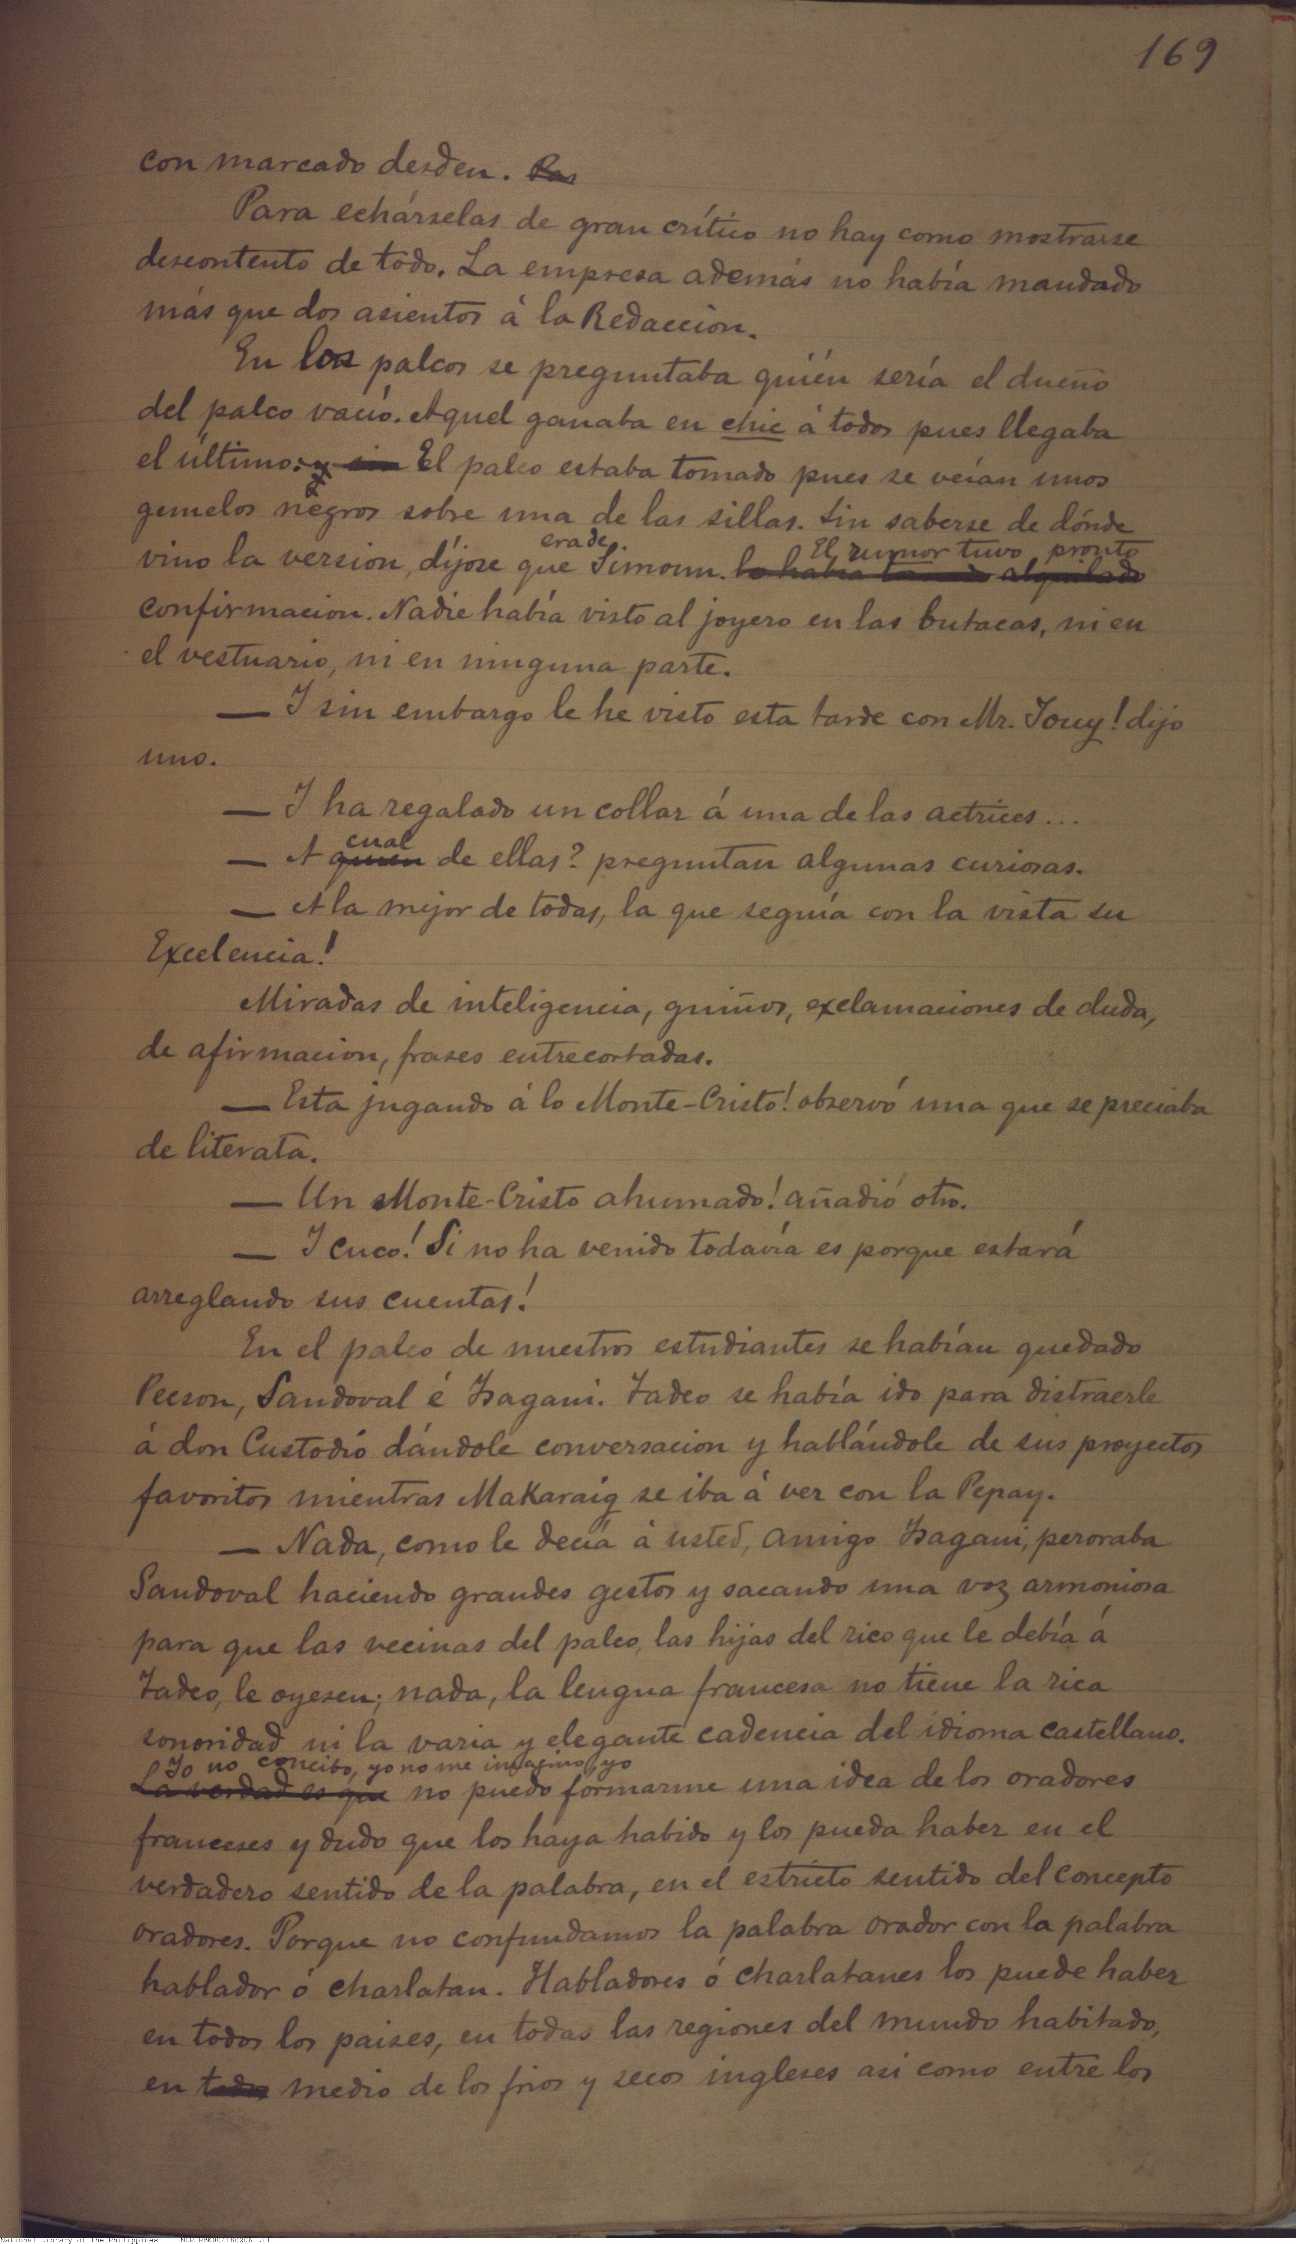 169
con marcado desden. Pas
Para echárselas de gran crítico no hay como mostrarse
descontento de todo. La empresa además no había mandado
más que dos asientos á la Redaccion.
En los palcos se preguntaba quién sería el dueño
del palco vacío. Aquel ganaba en chic á todos pues llegaba
el último: y sin El palco estaba tomado pues se veían unos
gemelos negros sobre una de las sillas. Sin saberse de dónde
era de El rumor tuvo pronto
vino la version, díjose que Simoun. lo había tomado alquilado
confirmacion. Nadie había visto al joyero en las butacas, ni en
el vestuario, ni en ninguna parte.
— Y sin embargo le he visto esta tarde con Mr. Jouy! dijo
uno.
— Y ha regalado un collar á una de las actrices...
cual
— A quien de ellas? preguntan algunas curiosas.
— A la mejor de todas, la que seguía con la vista su
Excelencia!
Miradas de inteligencia, guiños, exclamaciones de duda,
de afirmacion, frases entrecortadas.
— Esta jugando á lo Monte-Cristo! observó una que se preciaba
de literata.
— Un Monte-Cristo ahumado! añadió otro.
— Y cuco! Si no ha venido todavía es porque estará
arreglando sus cuentas!
En el palco de nuestros estudiantes se habían quedado
Pecson, Sandoval é Isagani. Tadeo se había ido para distraerle
á don Custodió dándole conversacion y hablándole de sus proyectos
favoritos mientras Makaraig se iba á ver con la Pepay.
— Nada, como le decía á usted, amigo Isagani, peroraba
Sandoval haciendo grandes gestos y sacando una voz armoniosa
para que las vecinas del palco, las hijas del rico que le debía á
Tadeo, le oyesen; nada, la lengua francesa no tiene la rica
sonoridad ni la varia y elegante cadencia del idioma castellano.
Yo no concibo, yo no me imagino, yo
La verdad es que no puedo formarme una idea de los oradores
franceses y dudo que los haya habido y los pueda haber en el
verdadero sentido de la palabra, en el estricto sentido del concepto
oradores. Porque no confundamos la palabra orador con la palabra
hablador ó charlatan. Habladores ó charlatanes los puede haber
en todos los paises, en todas las regiones del mundo habitado,
en todos medio de los frios y secos ingleses asi como entre los
National Library of the Philippines